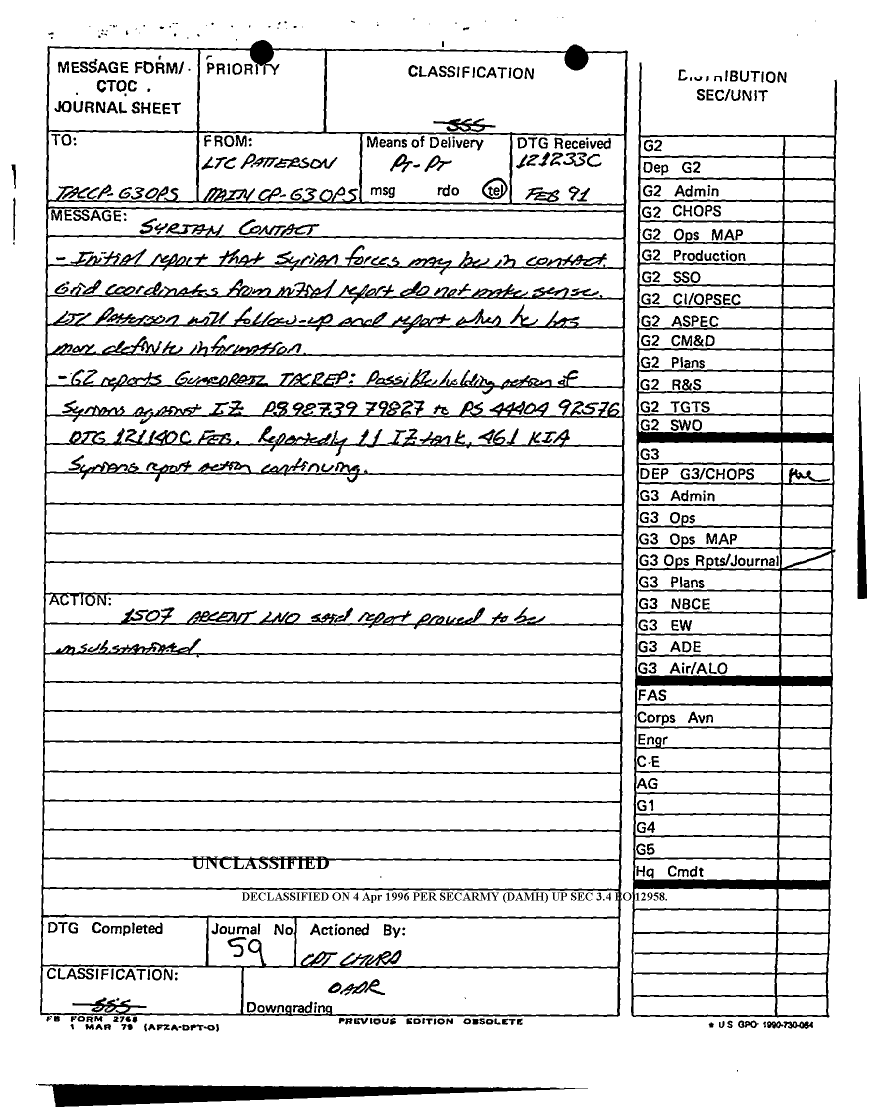 MESSAGE FORM/
CTOC
JOURNAL SHEET
PRIORITY
CLASSIFICATION
SSS
TO:
TACCP-G3OPS
FROM:
LTC PATTERSON
MAIN CP-G3 OPS
Means of Delivery
PT-PT
msg rdo tel
DTG Received
121233C
FEB 91
MESSAGE:
SYRIAN CONTACT
- Initial report that Syrian forces may be in contact.
Grid coordinates from initial report do not make sense.
LTC Patterson will follow-up and report when he has
more definite information.
- G2 reports GUARDRAIL TACREP: Possible holding action of
Syrians against IZ PS 98739 79827 to PS 44404 92576
DTG 121140C FEB. Reportedly 11 IZ tank, 461 KIA
Syrians report action continuing.
ACTION:
1507 ARCENT LNO said report proved to be
unsubstantiated.
UNCLASSIFIED
DECLASSIFIED ON 4 Apr 1996 PER SECARMY (DAMH) UP SEC 3.4 EO 12958.
DTG Completed
Journal No
59
Actioned By:
CPT
CLASSIFICATION:
SSS
OADR
Downgrading
FB FORM 2768
1 MAR 79 (AFZA-DPT-O)
PREVIOUS EDITION OBSOLETE
DISTRIBUTION
SEC/UNIT
G2
Dep G2
G2 Admin
G2 CHOPS
G2 Ops MAP
G2 Production
G2 SSO
G2 CI/OPSEC
G2 ASPEC
G2 CM&D
G2 Plans
G2 R&S
G2 TGTS
G2 SWO
G3
DEP G3/CHOPS
G3 Admin
G3 Ops
G3 Ops MAP
G3 Ops Rpts/Journal
G3 Plans
G3 NBCE
G3 EW
G3 ADE
G3 Air/ALO
FAS
Corps Avn
Engr
C-E
AG
G1
G4
G5
Hq Cmdt
* U S GPO 1990-730-064